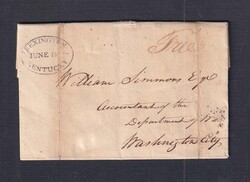 LEXINGTON
JUNE
KENTUCKY
Free
William Simmons Esqr
Accountant of the
Department of W
Washington City